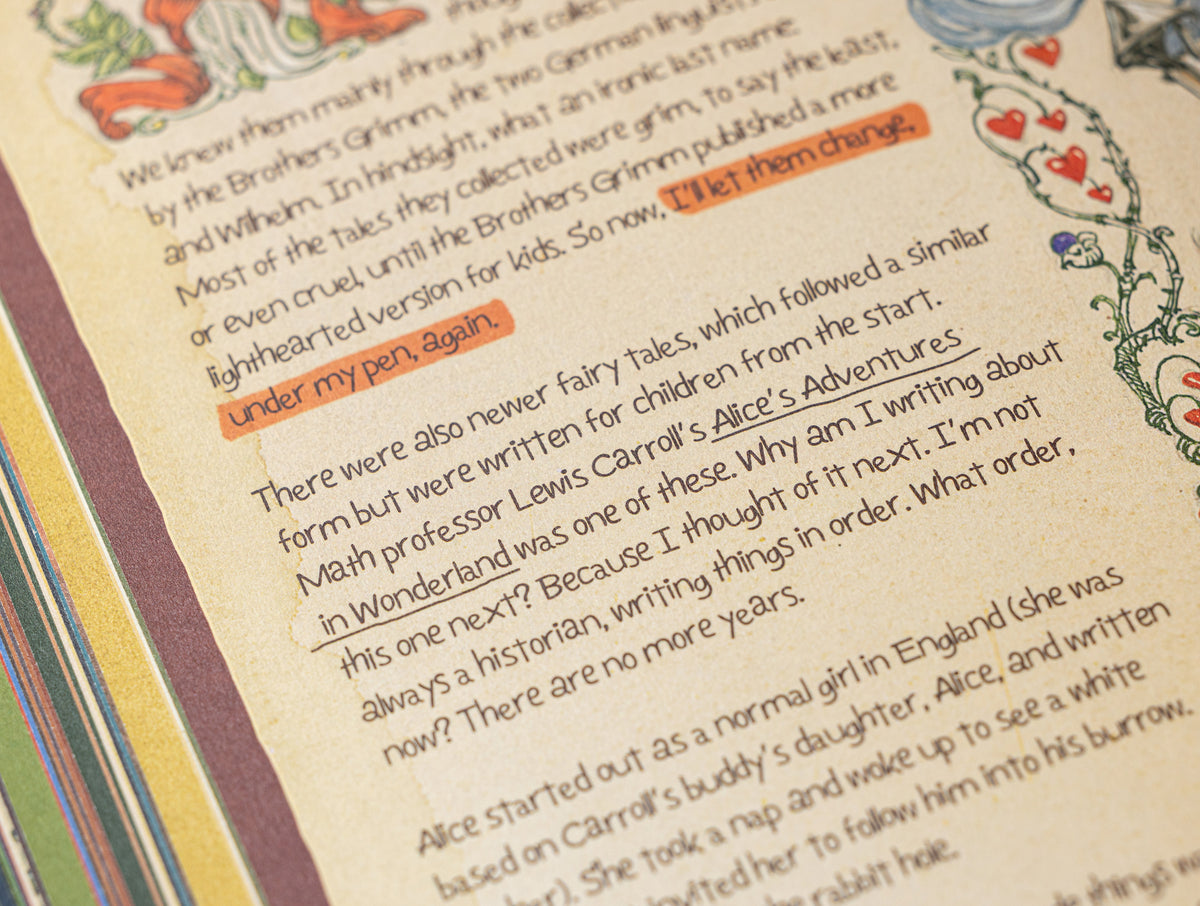 through the collec
We knew them mainly through the collec
by the Brothers Grimm, the two German linguists
and Wilhelm. In hindsight, what an ironic last name.
Most of the tales they collected were grim, to say the least,
or even cruel, until the Brothers Grimm published a more
lighthearted version for kids. So now, I'll let them change,
under my pen, again.
There were also newer fairy tales, which followed a similar
form but were written for children from the start.
Math professor Lewis Carroll's Alice's Adventures
in Wonderland was one of these. Why am I writing about
this one next? Because I thought of it next. I'm not
always a historian, writing things in order. What order,
now? There are no more years.
Alice started out as a normal girl in England (she was
based on Carroll's buddy's daughter, Alice, and written
her). She took a nap and woke up to see a white
invited her to follow him into his burrow.
the rabbit hole.
things